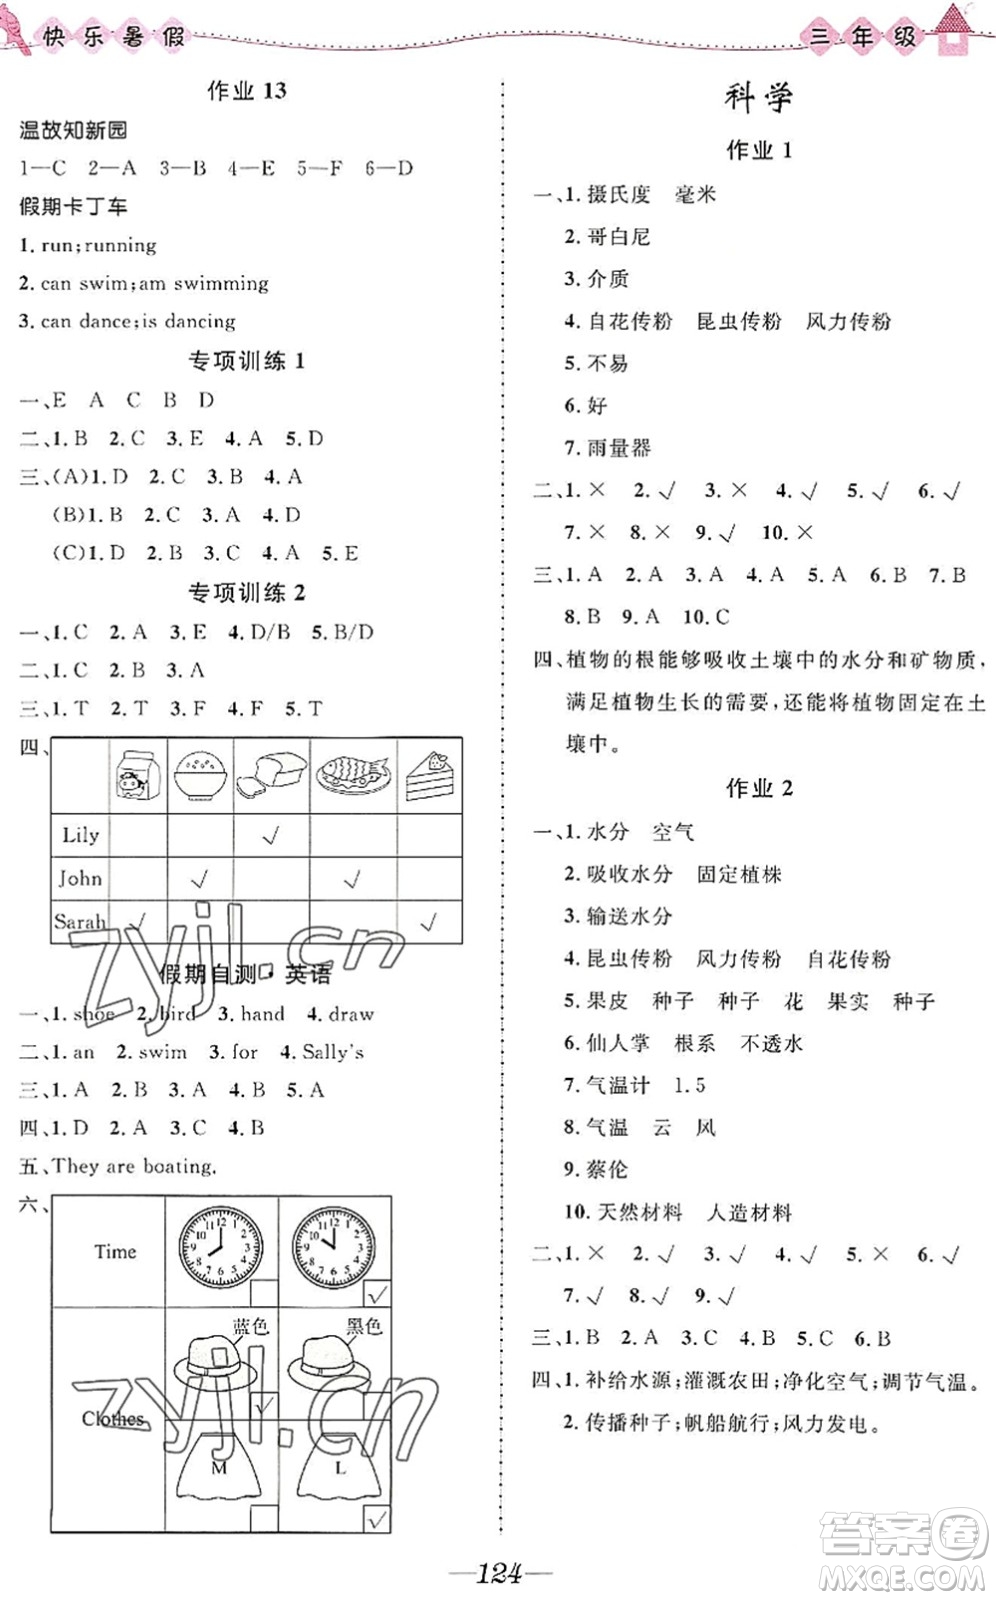 快乐暑假
三年级
作业 13
温故知新园
1—C 2—A 3—B 4—E 5—F 6—D
假期卡丁车
1. run;running
2. can swim;am swimming
3. can dance;is dancing
专项训练 1
一、E A C B D
二、1. B 2. C 3. E 4. A 5. D
三、(A)1. D 2. C 3. B 4. A
(B)1. B 2. C 3. A 4. D
(C)1. D 2. B 3. C 4. A 5. E
专项训练 2
一、1. C 2. A 3. E 4. D/B 5. B/D
二、1. C 2. B 3. A
三、1. T 2. T 3. F 4. F 5. T
四、
Lily √
John √ √
Sarah √ √
假期自测·英语
一、1. shoe 2. bird 3. hand 4. draw
二、1. an 2. swim 3. for 4. Sally's
三、1. A 2. B 3. A 4. B 5. A
四、1. D 2. A 3. C 4. B
五、They are boating.
六、
Time √
蓝色 黑色
Clothes √
M L √
科学
作业 1
一、1. 摄氏度 毫米
2. 哥白尼
3. 介质
4. 自花传粉 昆虫传粉 风力传粉
5. 不易
6. 好
7. 雨量器
二、1. × 2. √ 3. × 4. √ 5. √ 6. √
7. × 8. × 9. √ 10. ×
三、1. A 2. A 3. B 4. B 5. A 6. B 7. B
8. B 9. A 10. C
四、植物的根能够吸收土壤中的水分和矿物质,
满足植物生长的需要,还能将植物固定在土
壤中。
作业 2
一、1. 水分 空气
2. 吸收水分 固定植株
3. 输送水分
4. 昆虫传粉 风力传粉 自花传粉
5. 果皮 种子 种子 花 果实 种子
6. 仙人掌 根系 不透水
7. 气温计 1.5
8. 气温 云 风
9. 蔡伦
10. 天然材料 人造材料
二、1. × 2. √ 3. √ 4. √ 5. × 6. √
7. √ 8. √ 9. √
三、1. B 2. A 3. C 4. B 5. C 6. B
四、1. 补给水源;灌溉农田;净化空气;调节气温。
2. 传播种子;帆船航行;风力发电。
124
zyjl.cn
zyjl.cn
答案圈
MXQE.COM